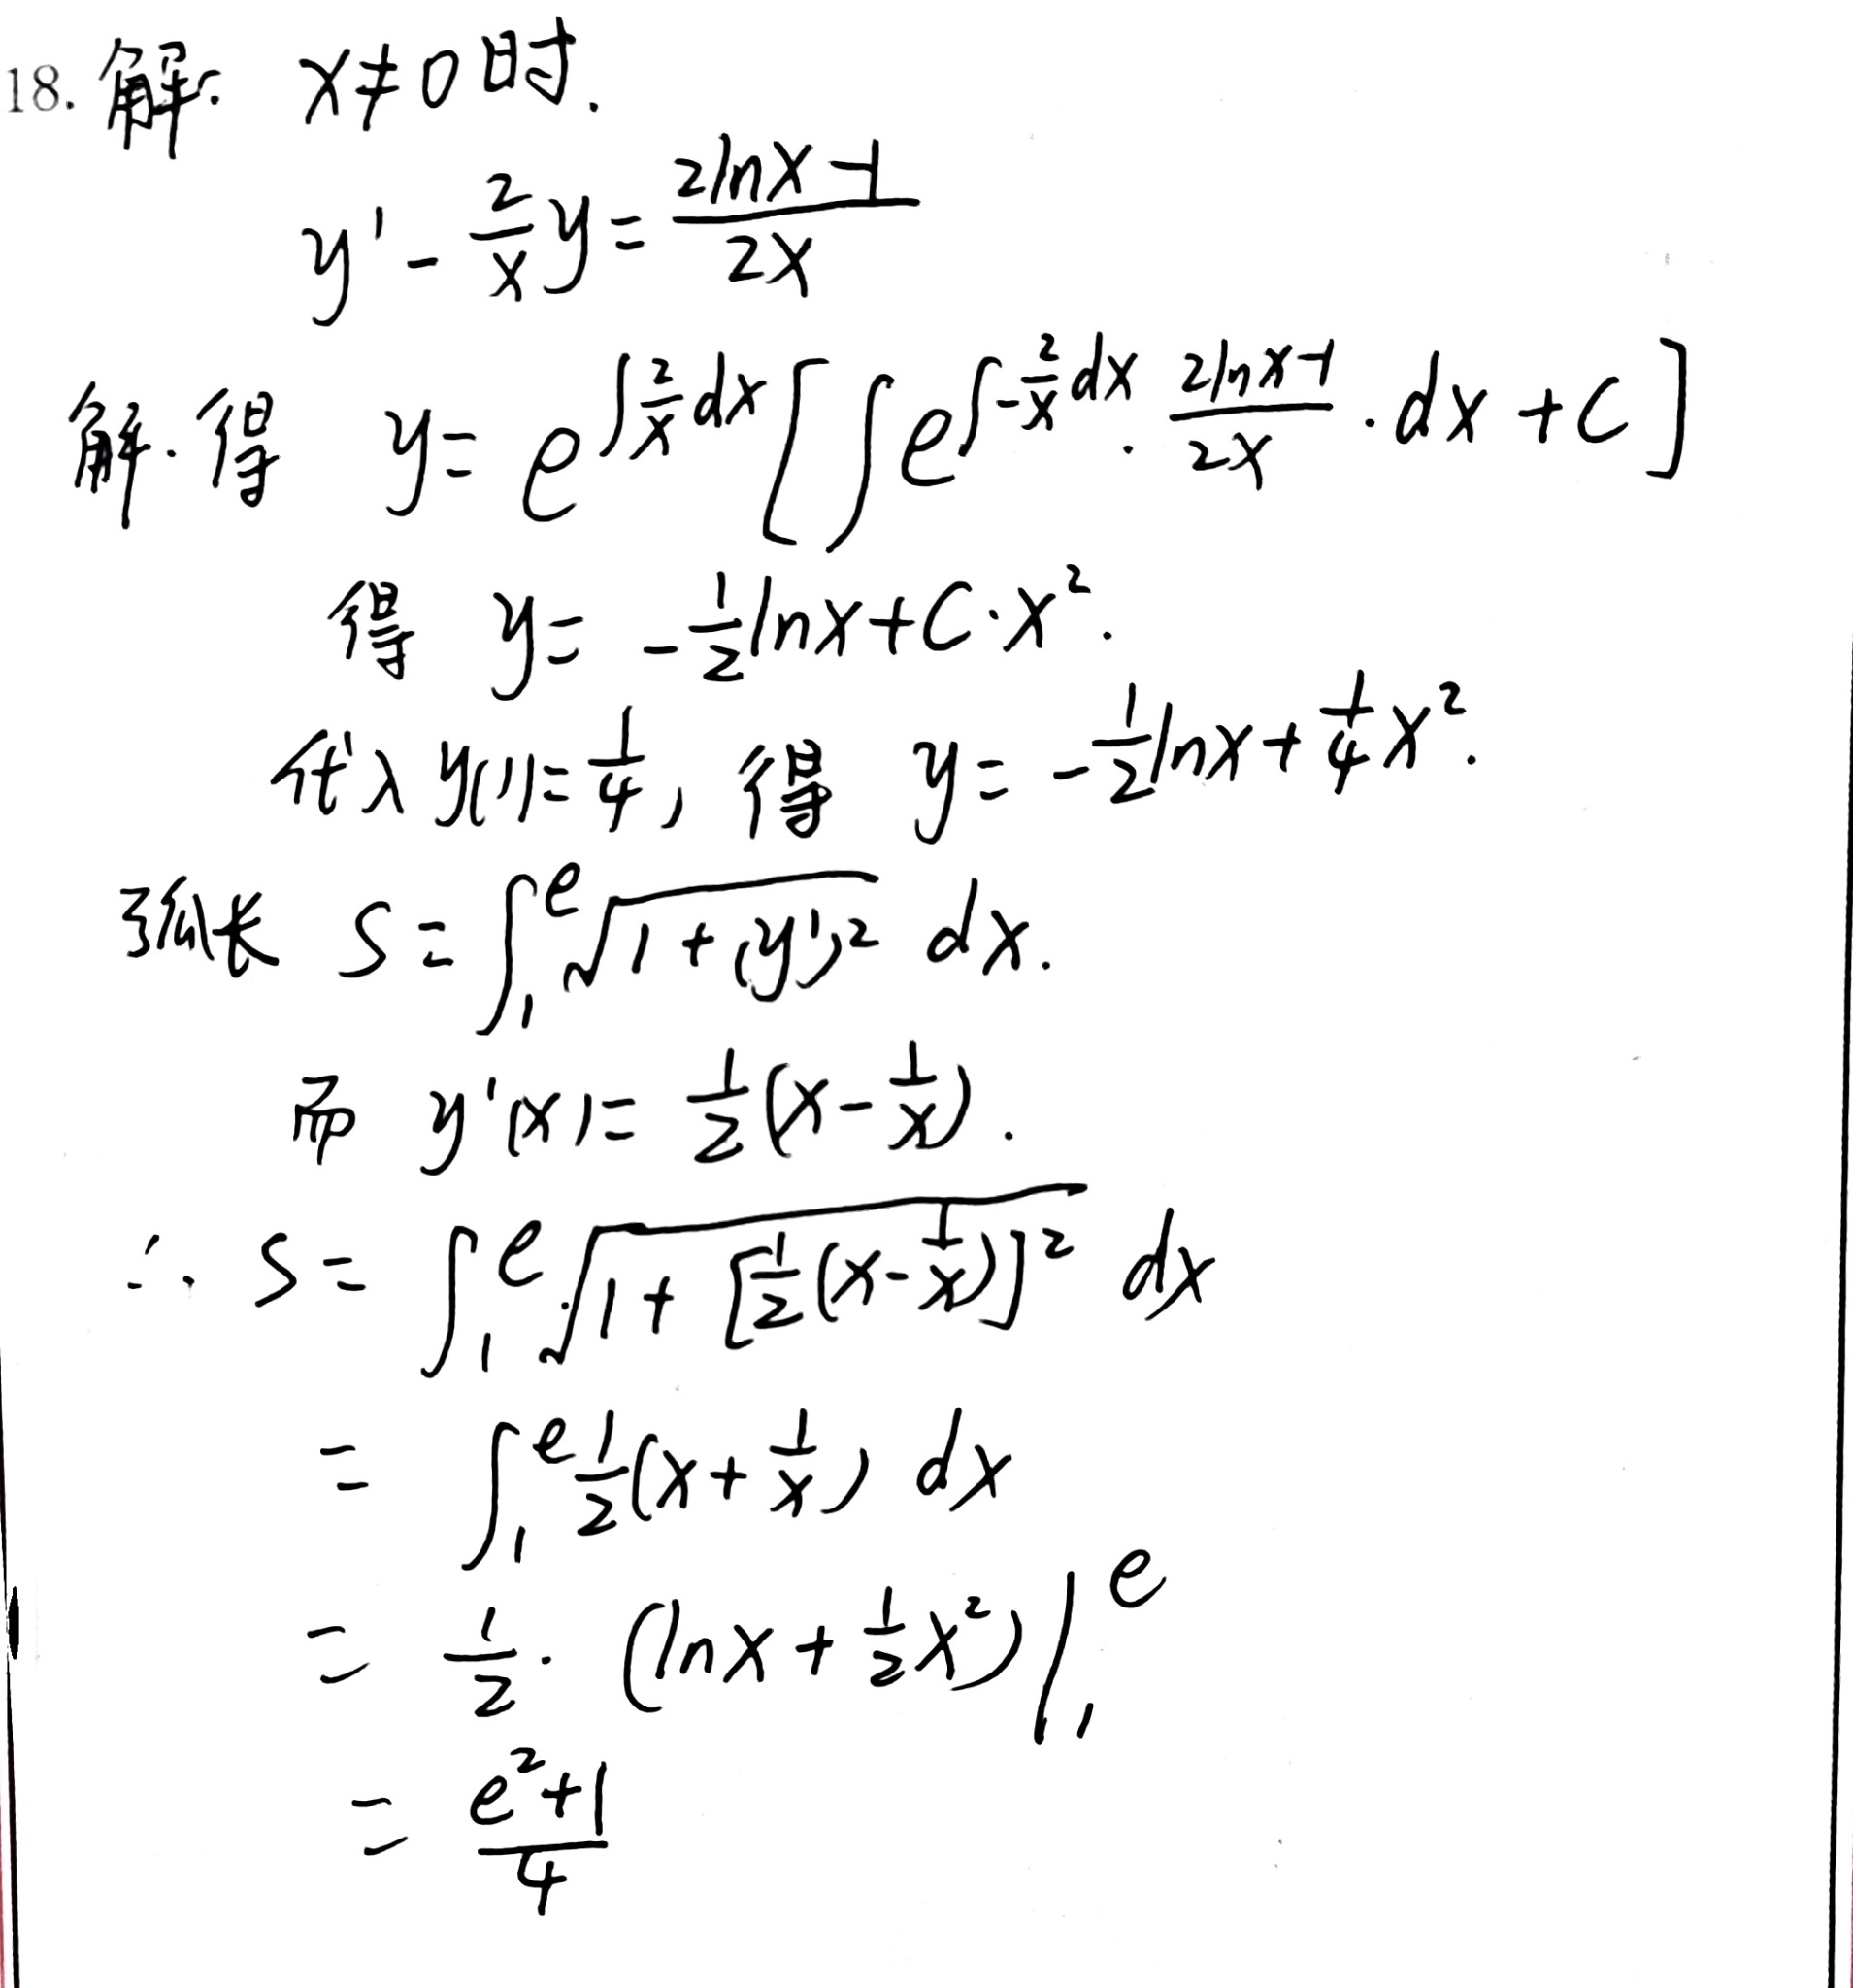 18. 解: x≠0时.
y' - \frac{2}{x}y = \frac{2lnx-1}{2x}
解.得 y = e^{∫\frac{2}{x}dx}[∫e^{∫-\frac{2}{x}dx}·\frac{2lnx-1}{2x}·dx+C]
得 y = -\frac{1}{2}lnx+C·x^2.
代入y(1)=\frac{1}{4}, 得 y = -\frac{1}{2}lnx+\frac{1}{4}x^2.
弧长 S = ∫_1^e \sqrt{1+(y')^2} dx.
而 y'(x) = \frac{1}{2}(x-\frac{1}{x}).
∴ S = ∫_1^e \sqrt{1+[\frac{1}{2}(x-\frac{1}{x})]^2} dx
= ∫_1^e \frac{1}{2}(x+\frac{1}{x}) dx
= \frac{1}{2}·(lnx+\frac{1}{2}x^2)|_1^e
= \frac{e^2+1}{4}